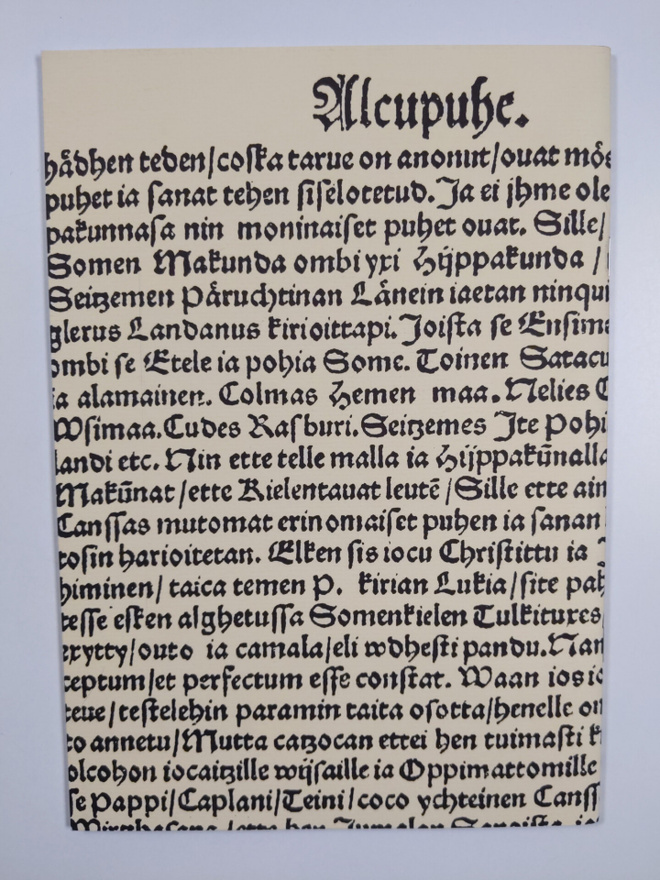 Alcupuhe.
hädhen teden/coska tarue on anonut/ouat mös
puhet ia sanat tehen siselotetud. Ja ei jhme ole
pakunnasa nin moninaiset puhet ouat. Sille/
Somen Makunda ombi yxi Hijppakunda /
Seitzemen Päruchtinan Länein iaetan ninqui
glerus Landanus kirioittapi. Joista se Ensime
ombi se Etele ia pohia Some. Toinen Satacu
ia alamainen. Colmas Hemen maa. Nelies
Wsimaa. Cudes Rasburi. Seitzemes Jte Pohi
landi etc. Nin ette telle malla ia Hijppakūnalla
Makūnat /ette Kielentauat leutē /Sille ette ain
Canssas mutomat erinomaiset puhen ia sanan
tosin harioitetan. Elken sis iocu Christittu ia
himinen/ taica temen P. kirian Lukia/site pah
tesse esken alghetussa Somenkielen Tulkituxes
exytty/outo ia camala/eli wdhesti pandu. Nam
ceptum/et perfectum esse constat. Waan ios io
teue/testelehin paramin taita osotta/henelle on
to annetu/Mutta catzocan ettei hen tuimasti k
olcohon iocaitzille wijsaille ia Oppimattomille
se Pappi/Caplani/Teini/coco ychteinen Canss